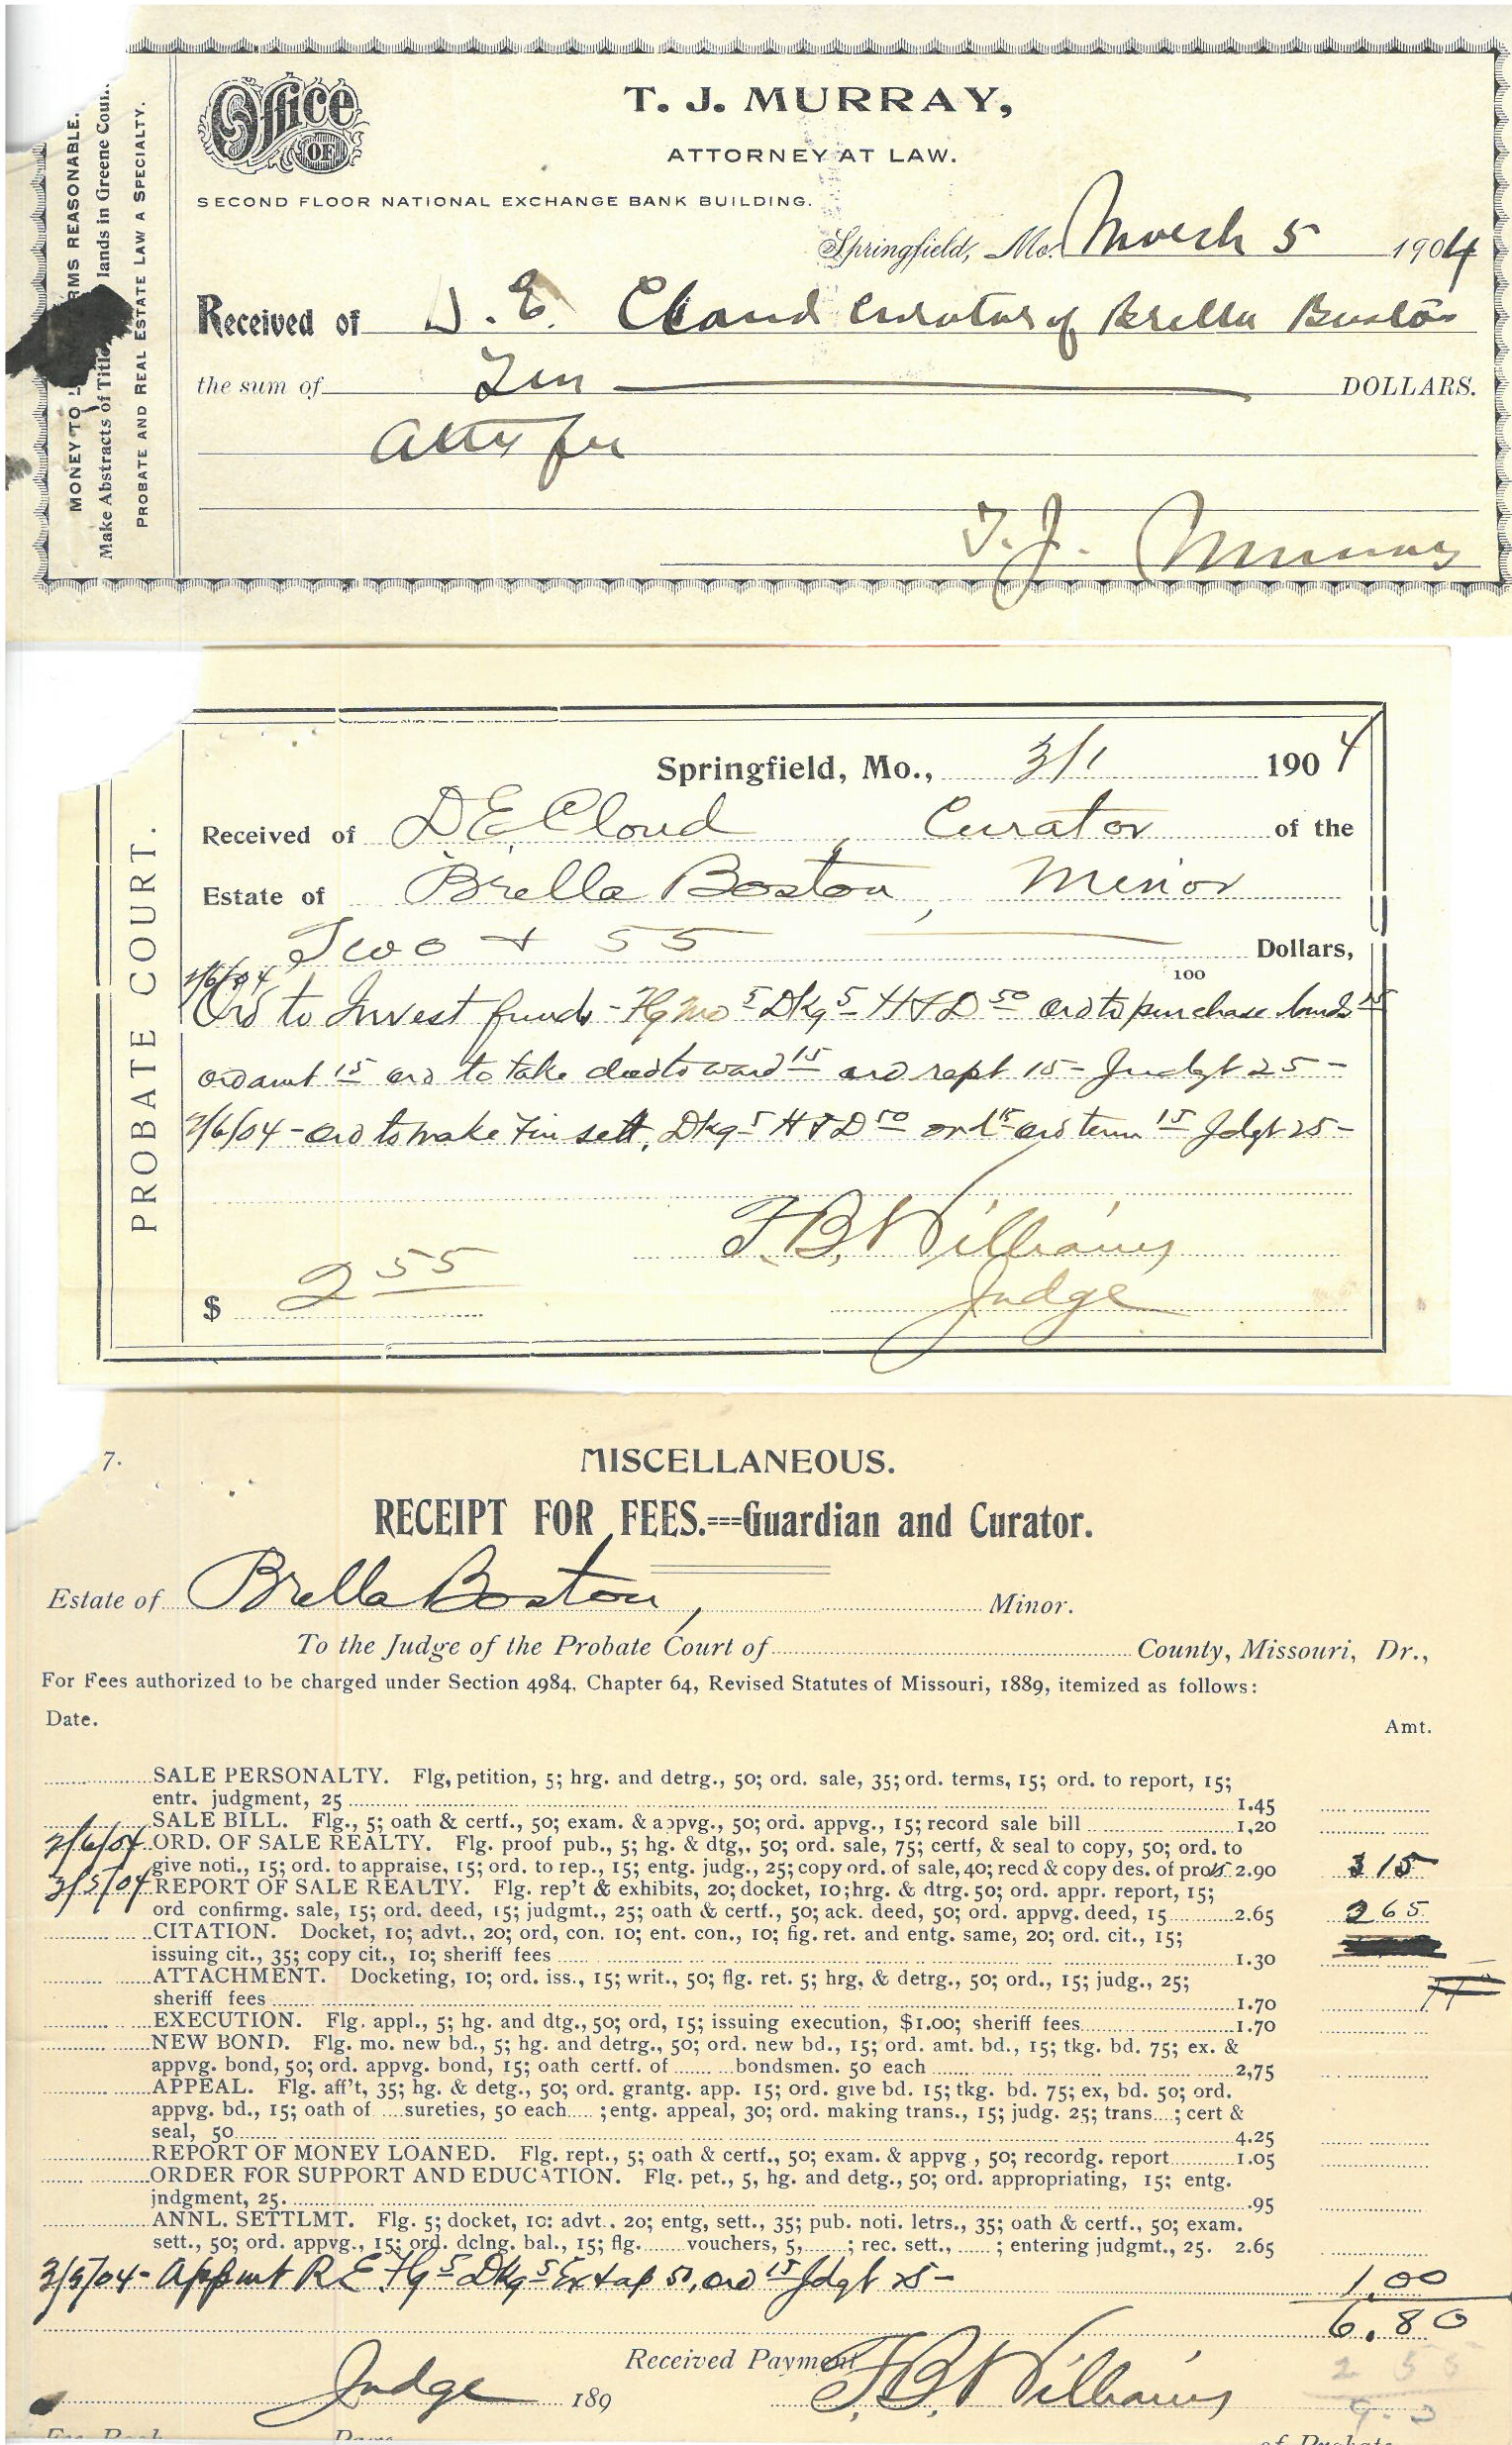 Office OF
T. J. MURRAY,
ATTORNEY AT LAW.
SECOND FLOOR NATIONAL EXCHANGE BANK BUILDING.
MONEY TO RMS REASONABLE.
Make Abstracts of Titl lands in Greene Coun
PROBATE AND REAL ESTATE LAW A SPECIALTY.
Springfield, Mo. March 5 1904
Received of D. E. Cloud Curator of Brella Boston
the sum of Ten DOLLARS.
Atty fee
T. J. Murray
PROBATE COURT.
Springfield, Mo., 3/1 1904
Received of D E Cloud, Curator of the
Estate of Brella Boston, Minor
Two + 55 Dollars,
100
2/6/04
Ord to Invest funds - Flg mo 5 Dkg 5 H & D 50 ord to purchase lands 15
ord amt 15 ord to take deed to ward 15 ord rept 15 - Judgt 25 -
2/6/04 - ord to make Fin sett. Dkg 5 H & D 50 ord 15 ord term 15 Jdgt 25 -
F. B. Williams
Judge
$ 2 55
7.
MISCELLANEOUS.
RECEIPT FOR FEES.===Guardian and Curator.
Estate of Brella Boston, Minor.
To the Judge of the Probate Court of County, Missouri, Dr.,
For Fees authorized to be charged under Section 4984, Chapter 64, Revised Statutes of Missouri, 1889, itemized as follows:
Date. Amt.
SALE PERSONALTY. Flg, petition, 5; hrg. and detrg., 50; ord. sale, 35; ord. terms, 15; ord. to report, 15;
entr. judgment, 25 1.45
SALE BILL. Flg., 5; oath & certf., 50; exam. & appvg., 50; ord. appvg., 15; record sale bill 1,20
2/6/04 ORD. OF SALE REALTY. Flg. proof pub., 5; hg. & dtg,. 50; ord. sale, 75; certf, & seal to copy, 50; ord. to
give noti., 15; ord. to appraise, 15; ord. to rep., 15; entg. judg., 25; copy ord. of sale, 40; recd & copy des. of pro 15 2.90 3 15
3/5/04 REPORT OF SALE REALTY. Flg. rep't & exhibits, 20; docket, 10; hrg. & dtrg. 50; ord. appr. report, 15;
ord confirmg. sale, 15; ord. deed, 15; judgmt., 25; oath & certf., 50; ack. deed, 50; ord. appvg. deed, 15 2.65 2 65
CITATION. Docket, 10; advt., 20; ord, con. 10; ent. con., 10; fig. ret. and entg. same, 20; ord. cit., 15;
issuing cit., 35; copy cit., 10; sheriff fees 1.30
ATTACHMENT. Docketing, 10; ord. iss., 15; writ., 50; flg. ret. 5; hrg, & detrg., 50; ord., 15; judg., 25;
sheriff fees 1.70
EXECUTION. Flg. appl., 5; hg. and dtg., 50; ord, 15; issuing execution, $1.00; sheriff fees 1.70
NEW BOND. Flg. mo. new bd., 5; hg. and detrg., 50; ord. new bd., 15; ord. amt. bd., 15; tkg. bd. 75; ex. &
appvg. bond, 50; ord. appvg. bond, 15; oath certf. of bondsmen. 50 each 2,75
APPEAL. Flg. aff't, 35; hg. & detg., 50; ord. grantg. app. 15; ord. give bd. 15; tkg. bd. 75; ex, bd. 50; ord.
appvg. bd., 15; oath of sureties, 50 each ; entg. appeal, 30; ord. making trans., 15; judg. 25; trans ; cert &
seal, 50 4.25
REPORT OF MONEY LOANED. Flg. rept., 5; oath & certf., 50; exam. & appvg , 50; recordg. report 1.05
ORDER FOR SUPPORT AND EDUCATION. Flg. pet., 5, hg. and detg., 50; ord. appropriating, 15; entg.
jndgment, 25. .95
ANNL. SETTLMT. Flg. 5; docket, 10: advt., 20; entg, sett., 35; pub. noti. letrs., 35; oath & certf., 50; exam.
sett., 50; ord. appvg., 15; ord. dclng. bal., 15; flg. vouchers, 5, ; rec. sett., ; entering judgmt., 25. 2.65
3/5/04 - Appmt R E Flg 5 Dkg 5 Ex & ap 50, ord 15 Jdgt 25 - 1.00
6.80
Received Payment F. B. Williams
2 55
Judge 189
9.3
Fee Book Page of Probate